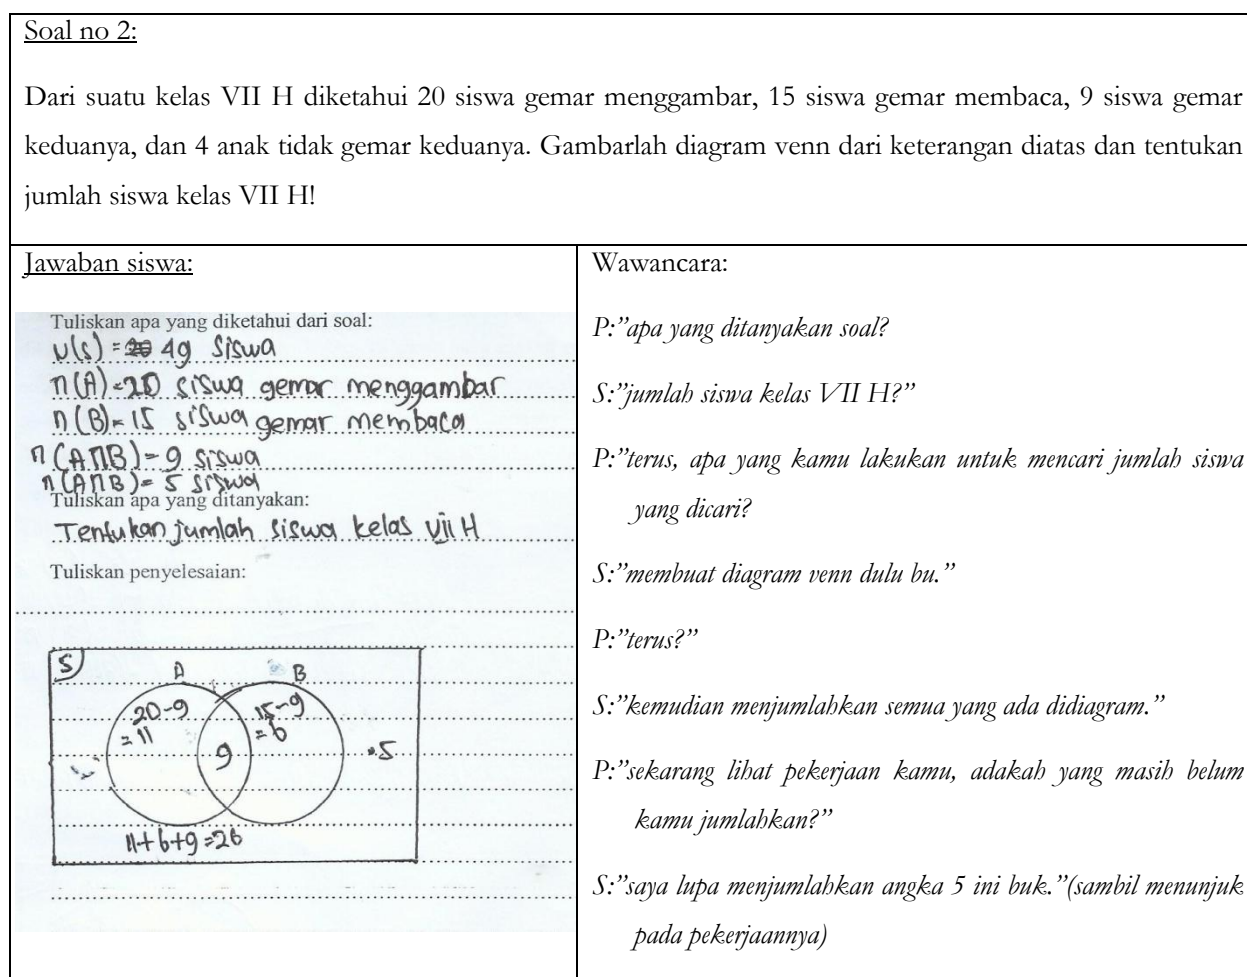 Soal no 2:
Dari suatu kelas VII H diketahui 20 siswa gemar menggambar, 15 siswa gemar membaca, 9 siswa gemar
keduanya, dan 4 anak tidak gemar keduanya. Gambarlah diagram venn dari keterangan diatas dan tentukan
jumlah siswa kelas VII H!
Jawaban siswa:
Tuliskan apa yang diketahui dari soal:
n(S) = 49 siswa
n(A) = 20 siswa gemar menggambar
n(B) = 15 siswa gemar membaca
n(A∩B) = 9 siswa
n(A∩B) = 5 siswa
Tuliskan apa yang ditanyakan:
Tentukan jumlah siswa kelas vii H
Tuliskan penyelesaian:
S
A
B
20-9
= 11
9
15-9
= 6
•5
11+6+9=26
Wawancara:
P:”apa yang ditanyakan soal?
S:”jumlah siswa kelas VII H?”
P:”terus, apa yang kamu lakukan untuk mencari jumlah siswa
yang dicari?
S:”membuat diagram venn dulu bu.”
P:”terus?”
S:”kemudian menjumlahkan semua yang ada didiagram.”
P:”sekarang lihat pekerjaan kamu, adakah yang masih belum
kamu jumlahkan?”
S:”saya lupa menjumlahkan angka 5 ini buk.”(sambil menunjuk
pada pekerjaannya)